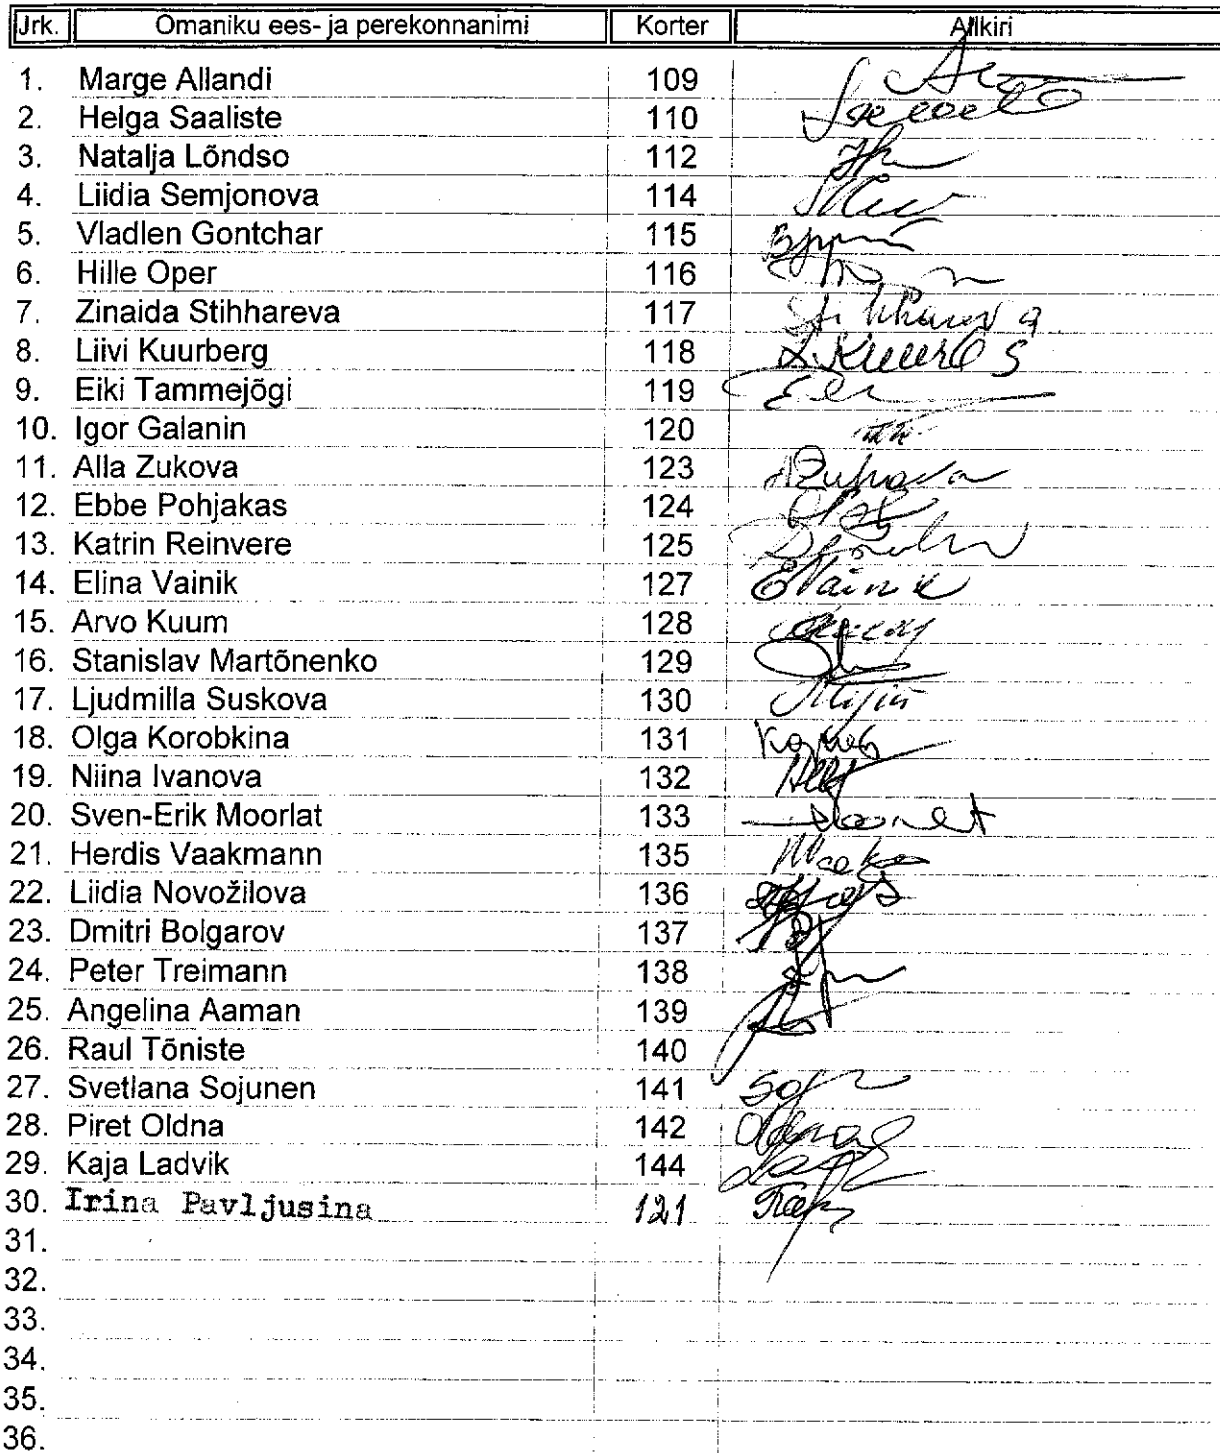 Jrk. Omaniku ees- ja perekonnanimi Korter Allkiri
1. Marge Allandi 109
2. Helga Saaliste 110
3. Natalja Lõndso 112
4. Liidia Semjonova 114
5. Vladlen Gontchar 115
6. Hille Oper 116
7. Zinaida Stihhareva 117 Stihhareva
8. Liivi Kuurberg 118
9. Eiki Tammejõgi 119
10. Igor Galanin 120
11. Alla Zukova 123 AZukova
12. Ebbe Pohjakas 124
13. Katrin Reinvere 125
14. Elina Vainik 127 EVainik
15. Arvo Kuum 128
16. Stanislav Martõnenko 129
17. Ljudmilla Suskova 130
18. Olga Korobkina 131
19. Niina Ivanova 132
20. Sven-Erik Moorlat 133
21. Herdis Vaakmann 135
22. Liidia Novožilova 136
23. Dmitri Bolgarov 137
24. Peter Treimann 138
25. Angelina Aaman 139
26. Raul Tõniste 140
27. Svetlana Sojunen 141
28. Piret Oldna 142
29. Kaja Ladvik 144
30. Irina Pavljusina 121
31.
32.
33.
34.
35.
36.